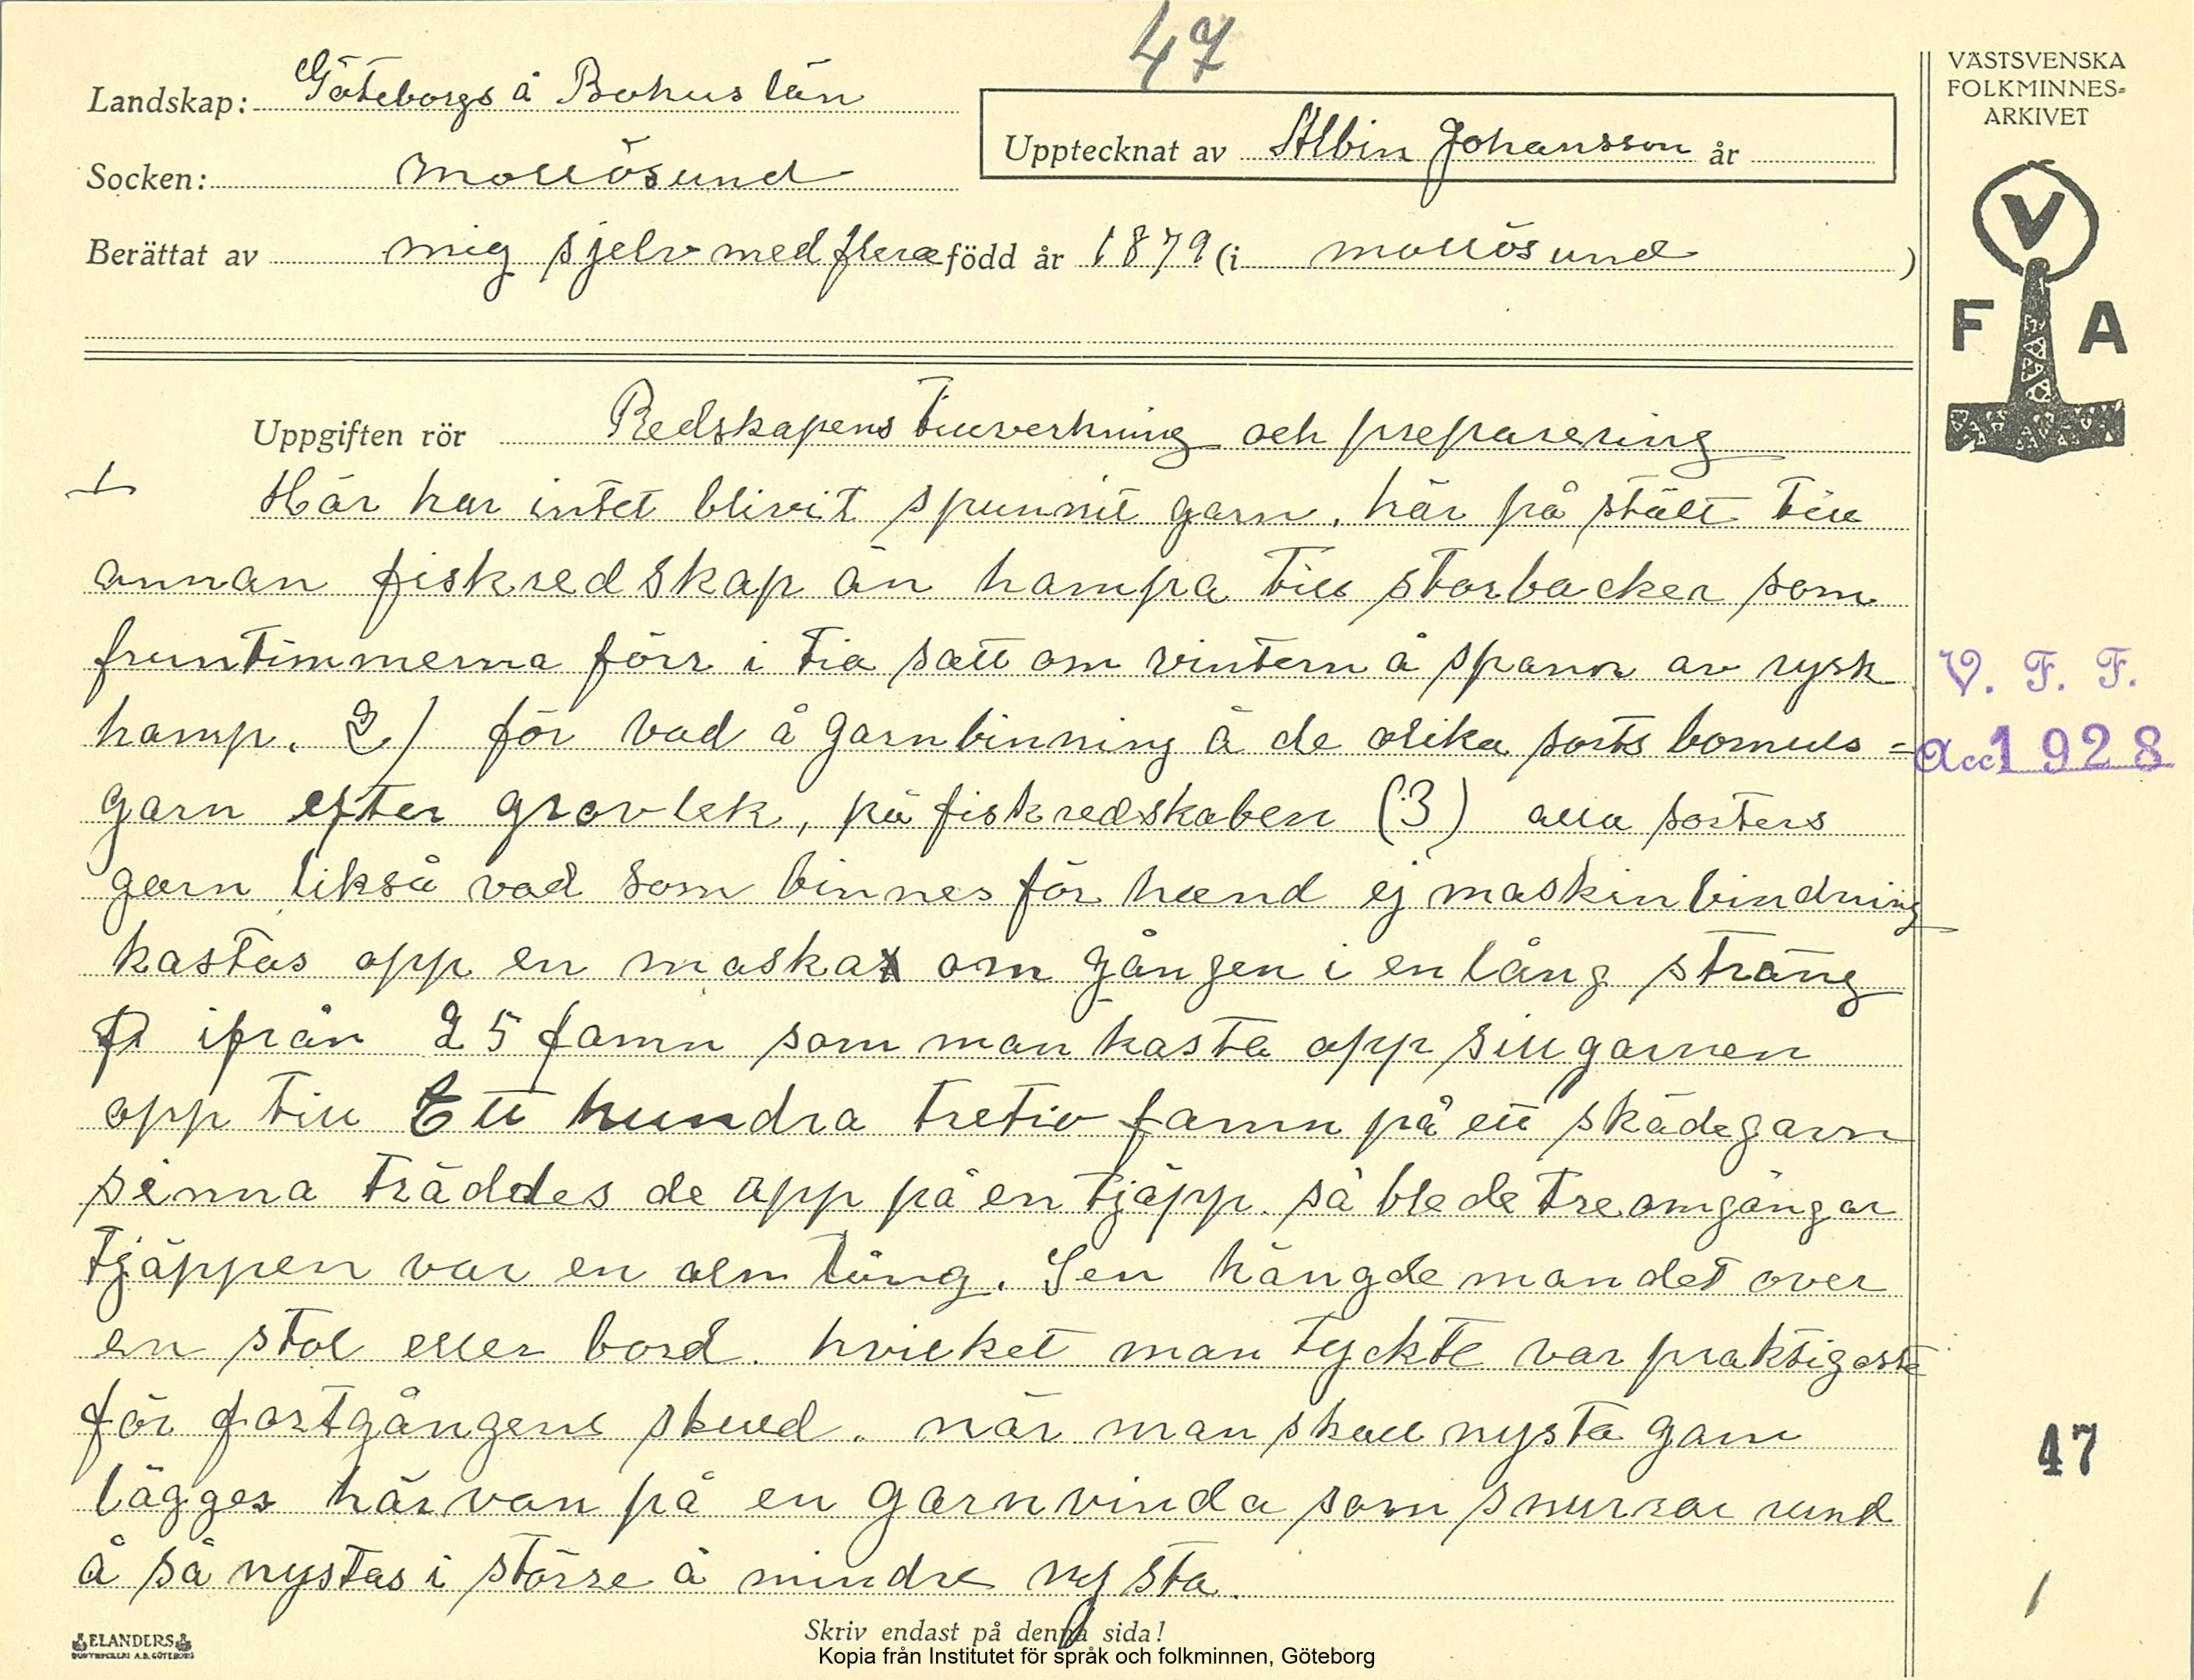 47
Landskap: Göteborgs å Bohus län
Upptecknat av Albin Johansson år
Socken: Mollösund
Berättat av mig sjelv med flera född år 1879 (i Mollösund )
VÄSTSVENSKA
FOLKMINNES-
ARKIVET
V
F A
Uppgiften rör Redskapens tillverkning och preparering
1 Här har intet blivit spunnit garn, här på stält till
annan fiskredskap än hampa till storbacker som
fruntimmerna förr i tia satt om vintern å spann av rysk
hamp. 2) för vad å garnbinning å de olika sorts bomuls =
garn efter grovlek, på fiskredskaben (3) alla sorters
garn likså vad som binnes för hand ej maskinbindning
kastas opp en maska om gången i en lång sträng
ifrån 25 famn som man kasta opp sillgarnen
opp till Ett hundra tretio famn på ett skädegarn
sinna träddes de opp på en tjäpp. så ble de tre omgångar
tjäppen var en aln lång. Sen hängde man det over
en stol eller bord. hvilket man tyckte var praktigaste
för fortgångens skuld. när man skall nysta garn
lägges härvan på en garnvinda som snurrar rund
å så nystas i större å mindre nysta.
V. F. F.
Acc 1928
47
1
ELANDERS
BOKTRYCKERI A.B. GÖTEBORG
Skriv endast på denna sida!
Kopia från Institutet för språk och folkminnen, Göteborg